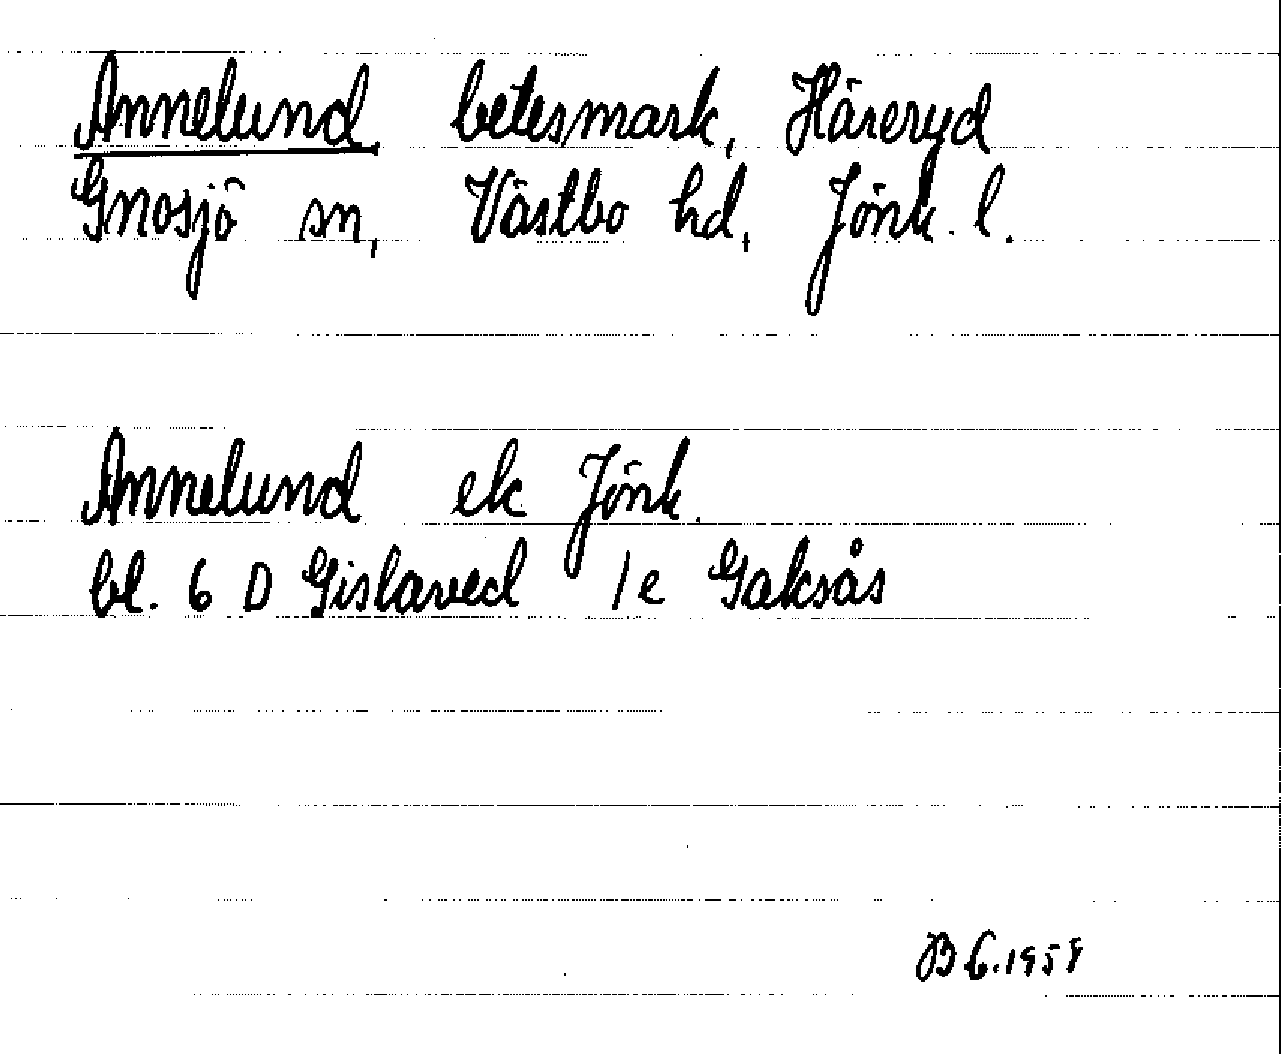 Annelund, betesmark, Häreryd
Gnosjö sn, Västbo hd, Jönk. l.
Annelund ek Jönk.
bl. 6 D Gislaved 1e Gaksås